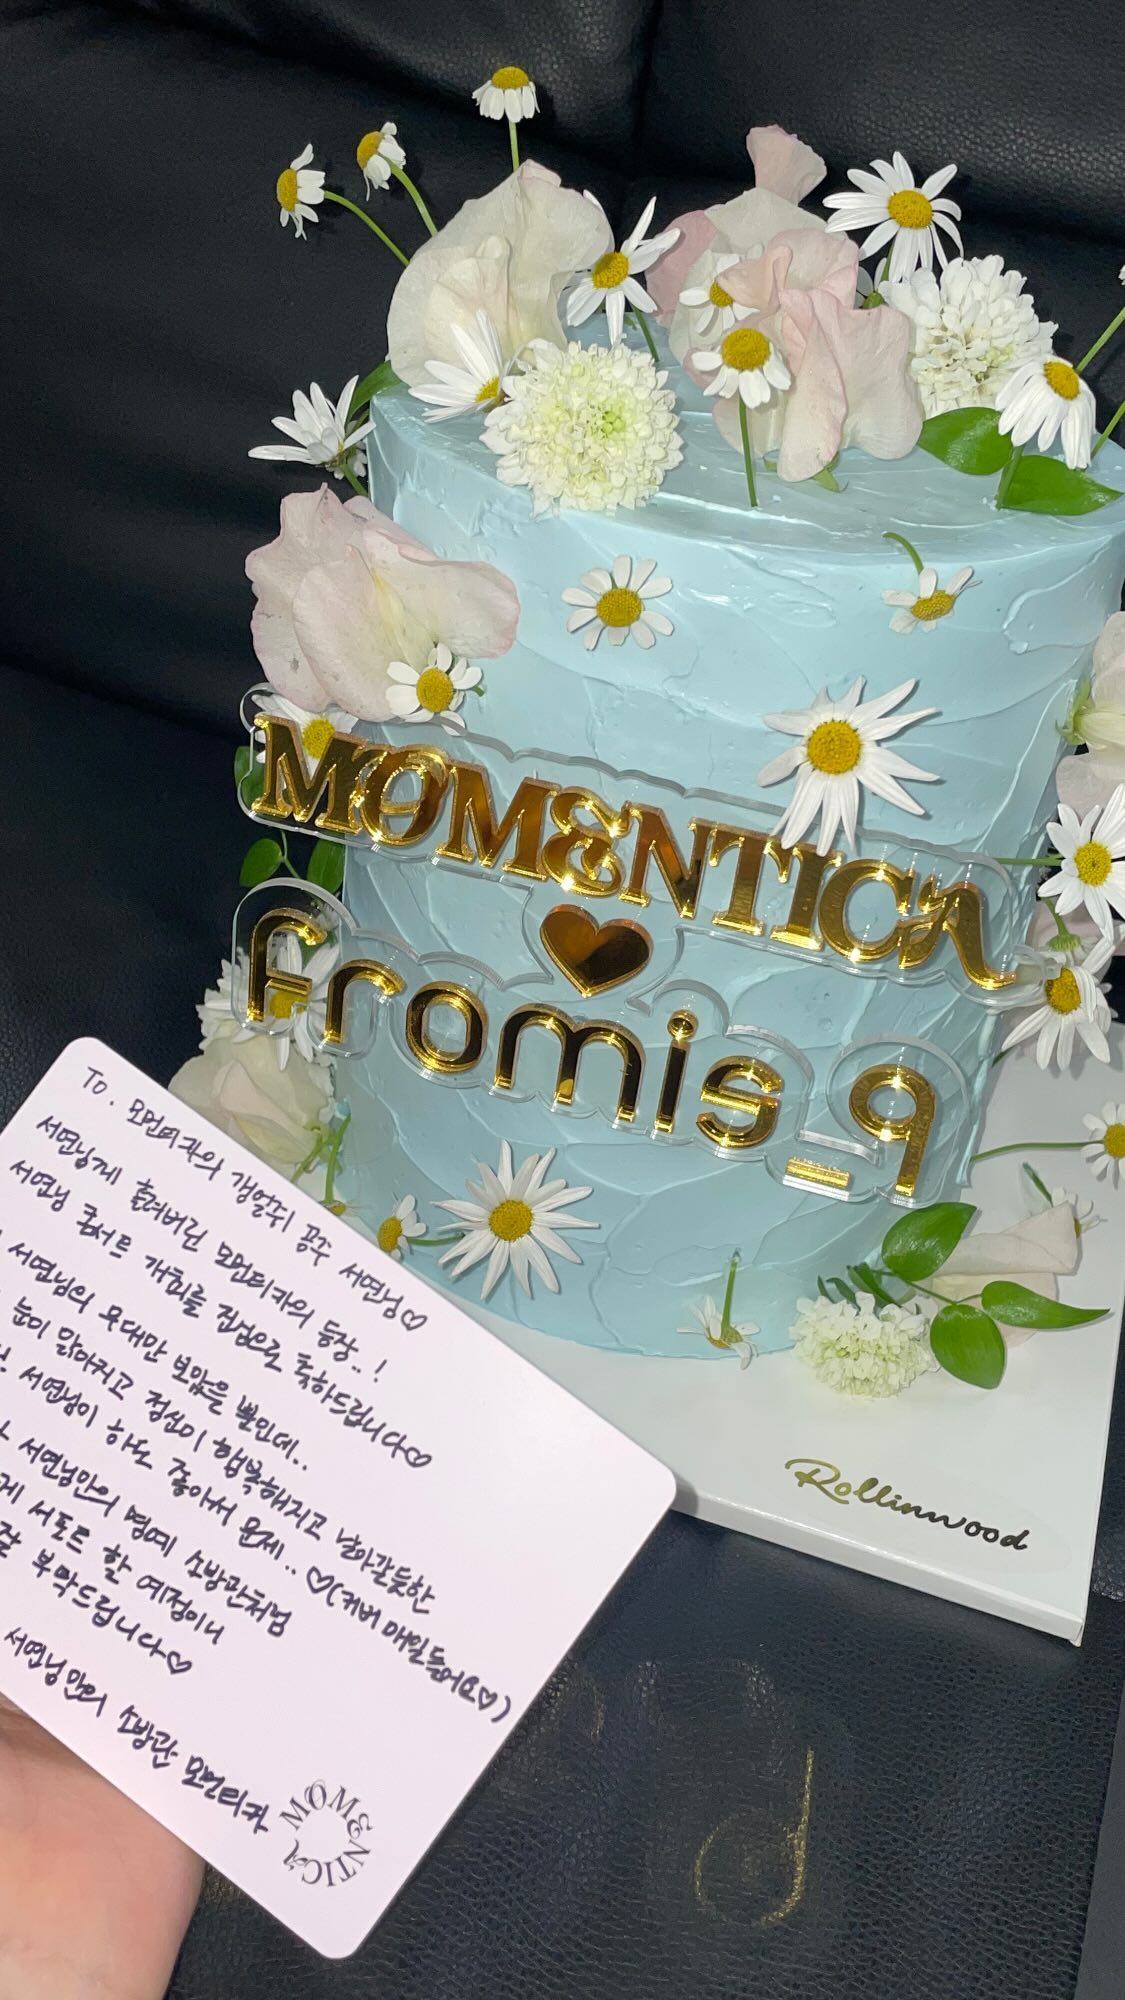 MOMENTICA
fromis_9
Rollinwood
To. 모먼티카의 갱얼쥐 공주 서연님♡
서연님께 홀려버린 모먼티카의 등장..!
서연님 콘서트 개최를 진심으로 축하드립니다♡
서연님의 무대만 보았을 뿐인데..
눈이 맑아지고 정신이 행복해지고 날아갈듯한
서연님이 하도 좋아서 문제..♡(커버 매일들어요♡)
서연님만의 명예 소방관처럼
서포트 할 예정이니
잘 부탁드립니다♡
서연님만의 소방관 모먼티카
MOMENTICA